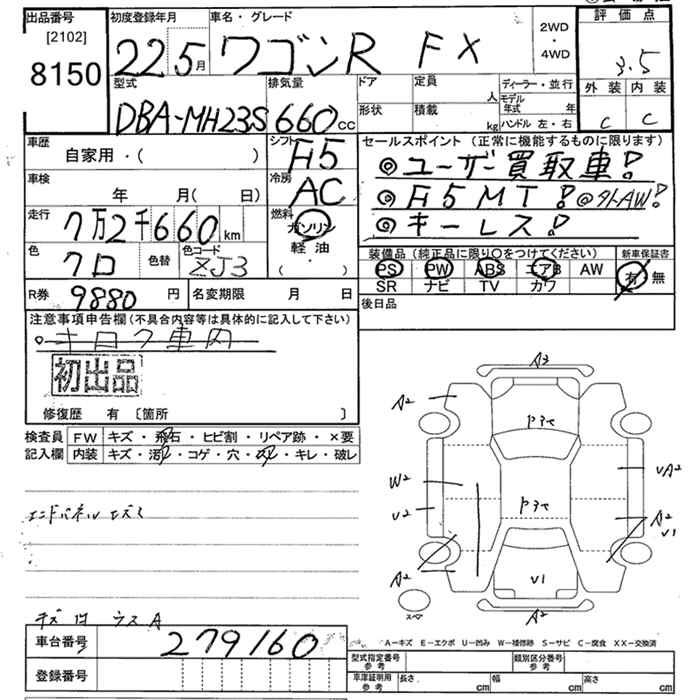 出品番号
[2102]
8150
初度登録年月
22 5月
車名・グレード
ワゴンR FX
2WD
・
4WD
評価点
3.5
外装 内装
C C
型式
DBA-MH23S
排気量
660cc
ドア
形状
定員
人
積載
kg
ディーラー・並行
モデル年式 年
ハンドル 左・右
車歴
自家用・( )
シフト
F5
セールスポイント (正常に機能するものに限ります)
◎ユーザー買取車!
◎F5MT! ◎外AW!
◎キーレス!
車検
年 月( 日)
冷房
AC
走行
7万2千660km
燃料
ガソリン
軽油
・
( )
色
クロ
色替
色コード
ZJ3
装備品 (純正品に限り○をつけてください)
PS PW ABS エアB AW
SR ナビ TV カワ
新車保証書
有 無
R券 9880円
名変期限 月 日
後日品
注意事項申告欄(不具合内容等は具体的に記入して下さい)
初出品
修復歴 有 〔箇所 〕
検査員
記入欄
FW キズ・飛石・ヒビ割・リペア跡・×要
内装 キズ・汚れ・コゲ・穴・・キレ・破レ
A3
A2
Pｺﾃ
W2
V2
Pｺﾃ
VA2
A2
V1
A2
V1
A2
スペア
車台番号 279160
登録番号
A-キズ E-エクボ U-凹み W-補修跡 S-サビ C-腐食 XX-交換済
型式指定番号
参考
類別区分番号
参考
車庫証明用
参考
長さ cm 幅 cm 高さ cm